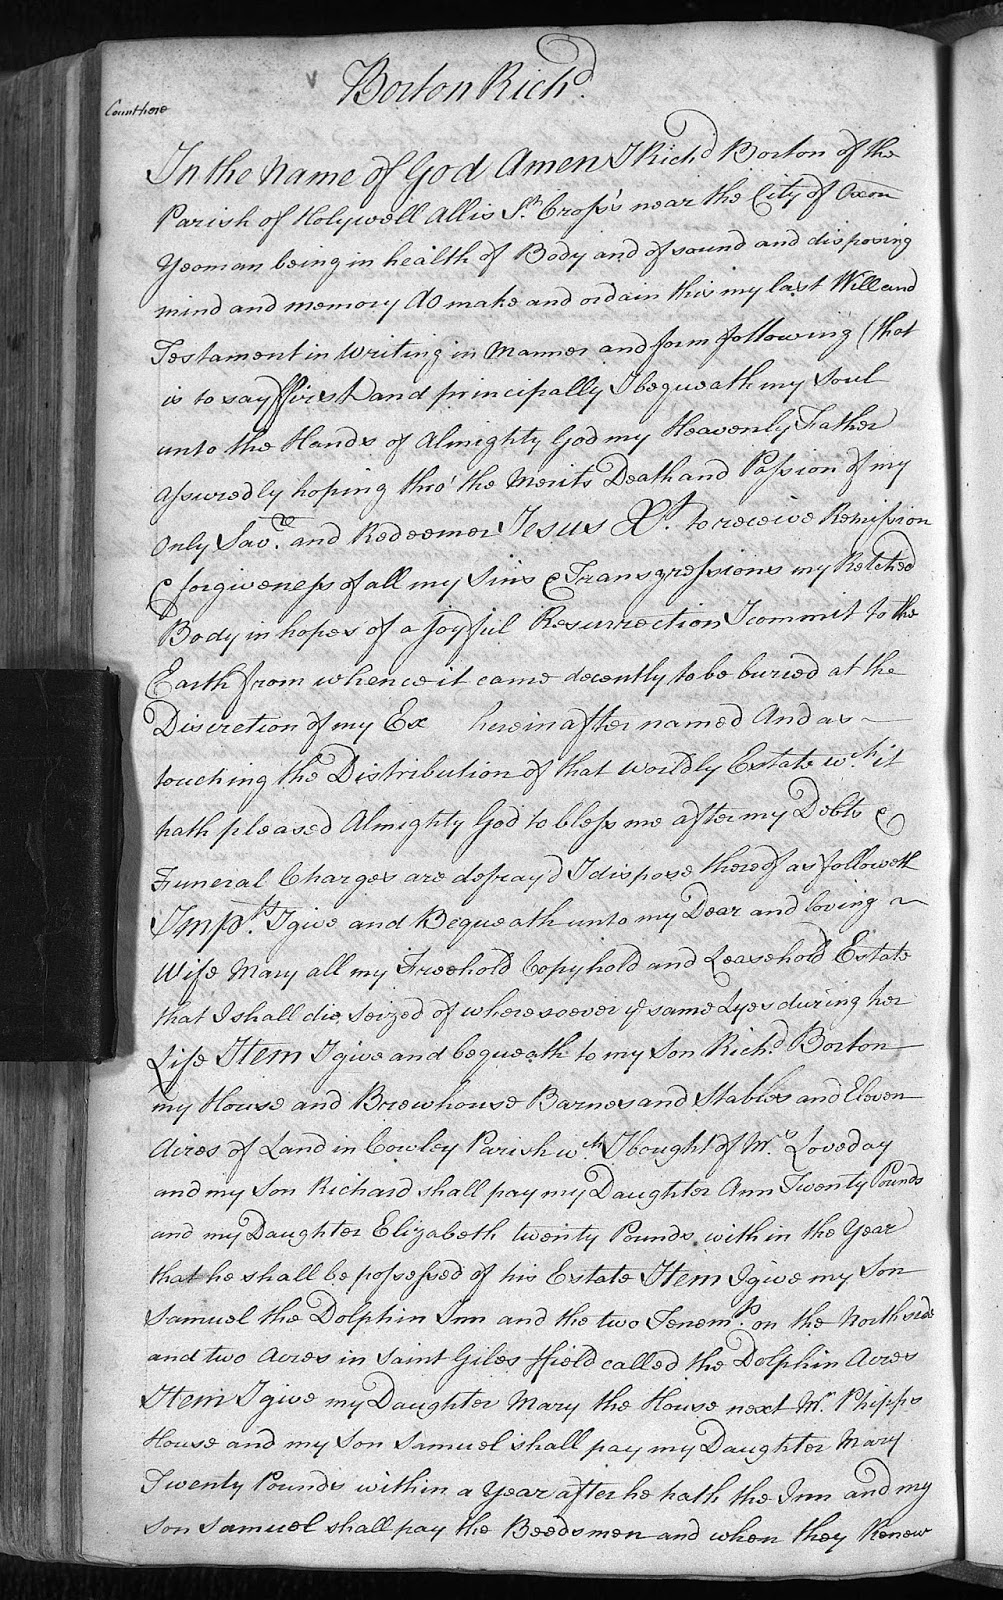 Borton Richd.
Count here
In the Name of God Amen I Richd Borton of the
Parish of Holywell Allis St. Cross's near the City of Oxon
Yeoman being in health of Body and of sound and disposing
mind and memory do make and ordain this my last Will and
Testament in Writing in Manner and form following (that
is to say) ffirst and principally I bequeath my Soul
unto the Hands of Almighty God my Heavenly Father
assuredly hoping thro' the Merits Death and Passion of my
Only Savre. and Redeemer Jesus Xt. to receive Remission
& forgiveness of all my Sins & Transgressions my Retched
Body in hopes of a Joyful Resurrection I commit to the
Earth from whence it came decently to be buried at the
Discretion of my Ex hereinafter named And as
touching the Distribution of that worldly Estate wch. it
hath pleased Almighty God to bless me after my Debts &
Funeral Charges are defray'd I dispose thereof as followeth
Imps. I give and Bequeath unto my Dear and loving
Wife Mary all my Freehold Copyhold and Leasehold Estate
that I shall die seized of wheresoever ye same Lyes during her
Life Item I give and bequeath to my Son Richd Borton
my House and Brewhouse Barnes and Stables and Eleven
Acres of Land in Cowley Parish wch. I bought of Mrs. Loveday
and my Son Richard shall pay my Daughter Ann Twenty Pounds
and my Daughter Elizabeth twenty Pounds within the Year
that he shall be possessed of his Estate Item I give my Son
Samuel the Dolphin Inn and the two Tenemts. on the North side
and two Acres in Saint Giles ffield called the Dolphin Acres
Item I give my Daughter Mary the House next Mr. Phipps
House and my Son Samuel shall pay my Daughter Mary
Twenty Pounds within a Year after he hath the Inn and my
Son Samuel shall pay the Beedsmen and when they Renew